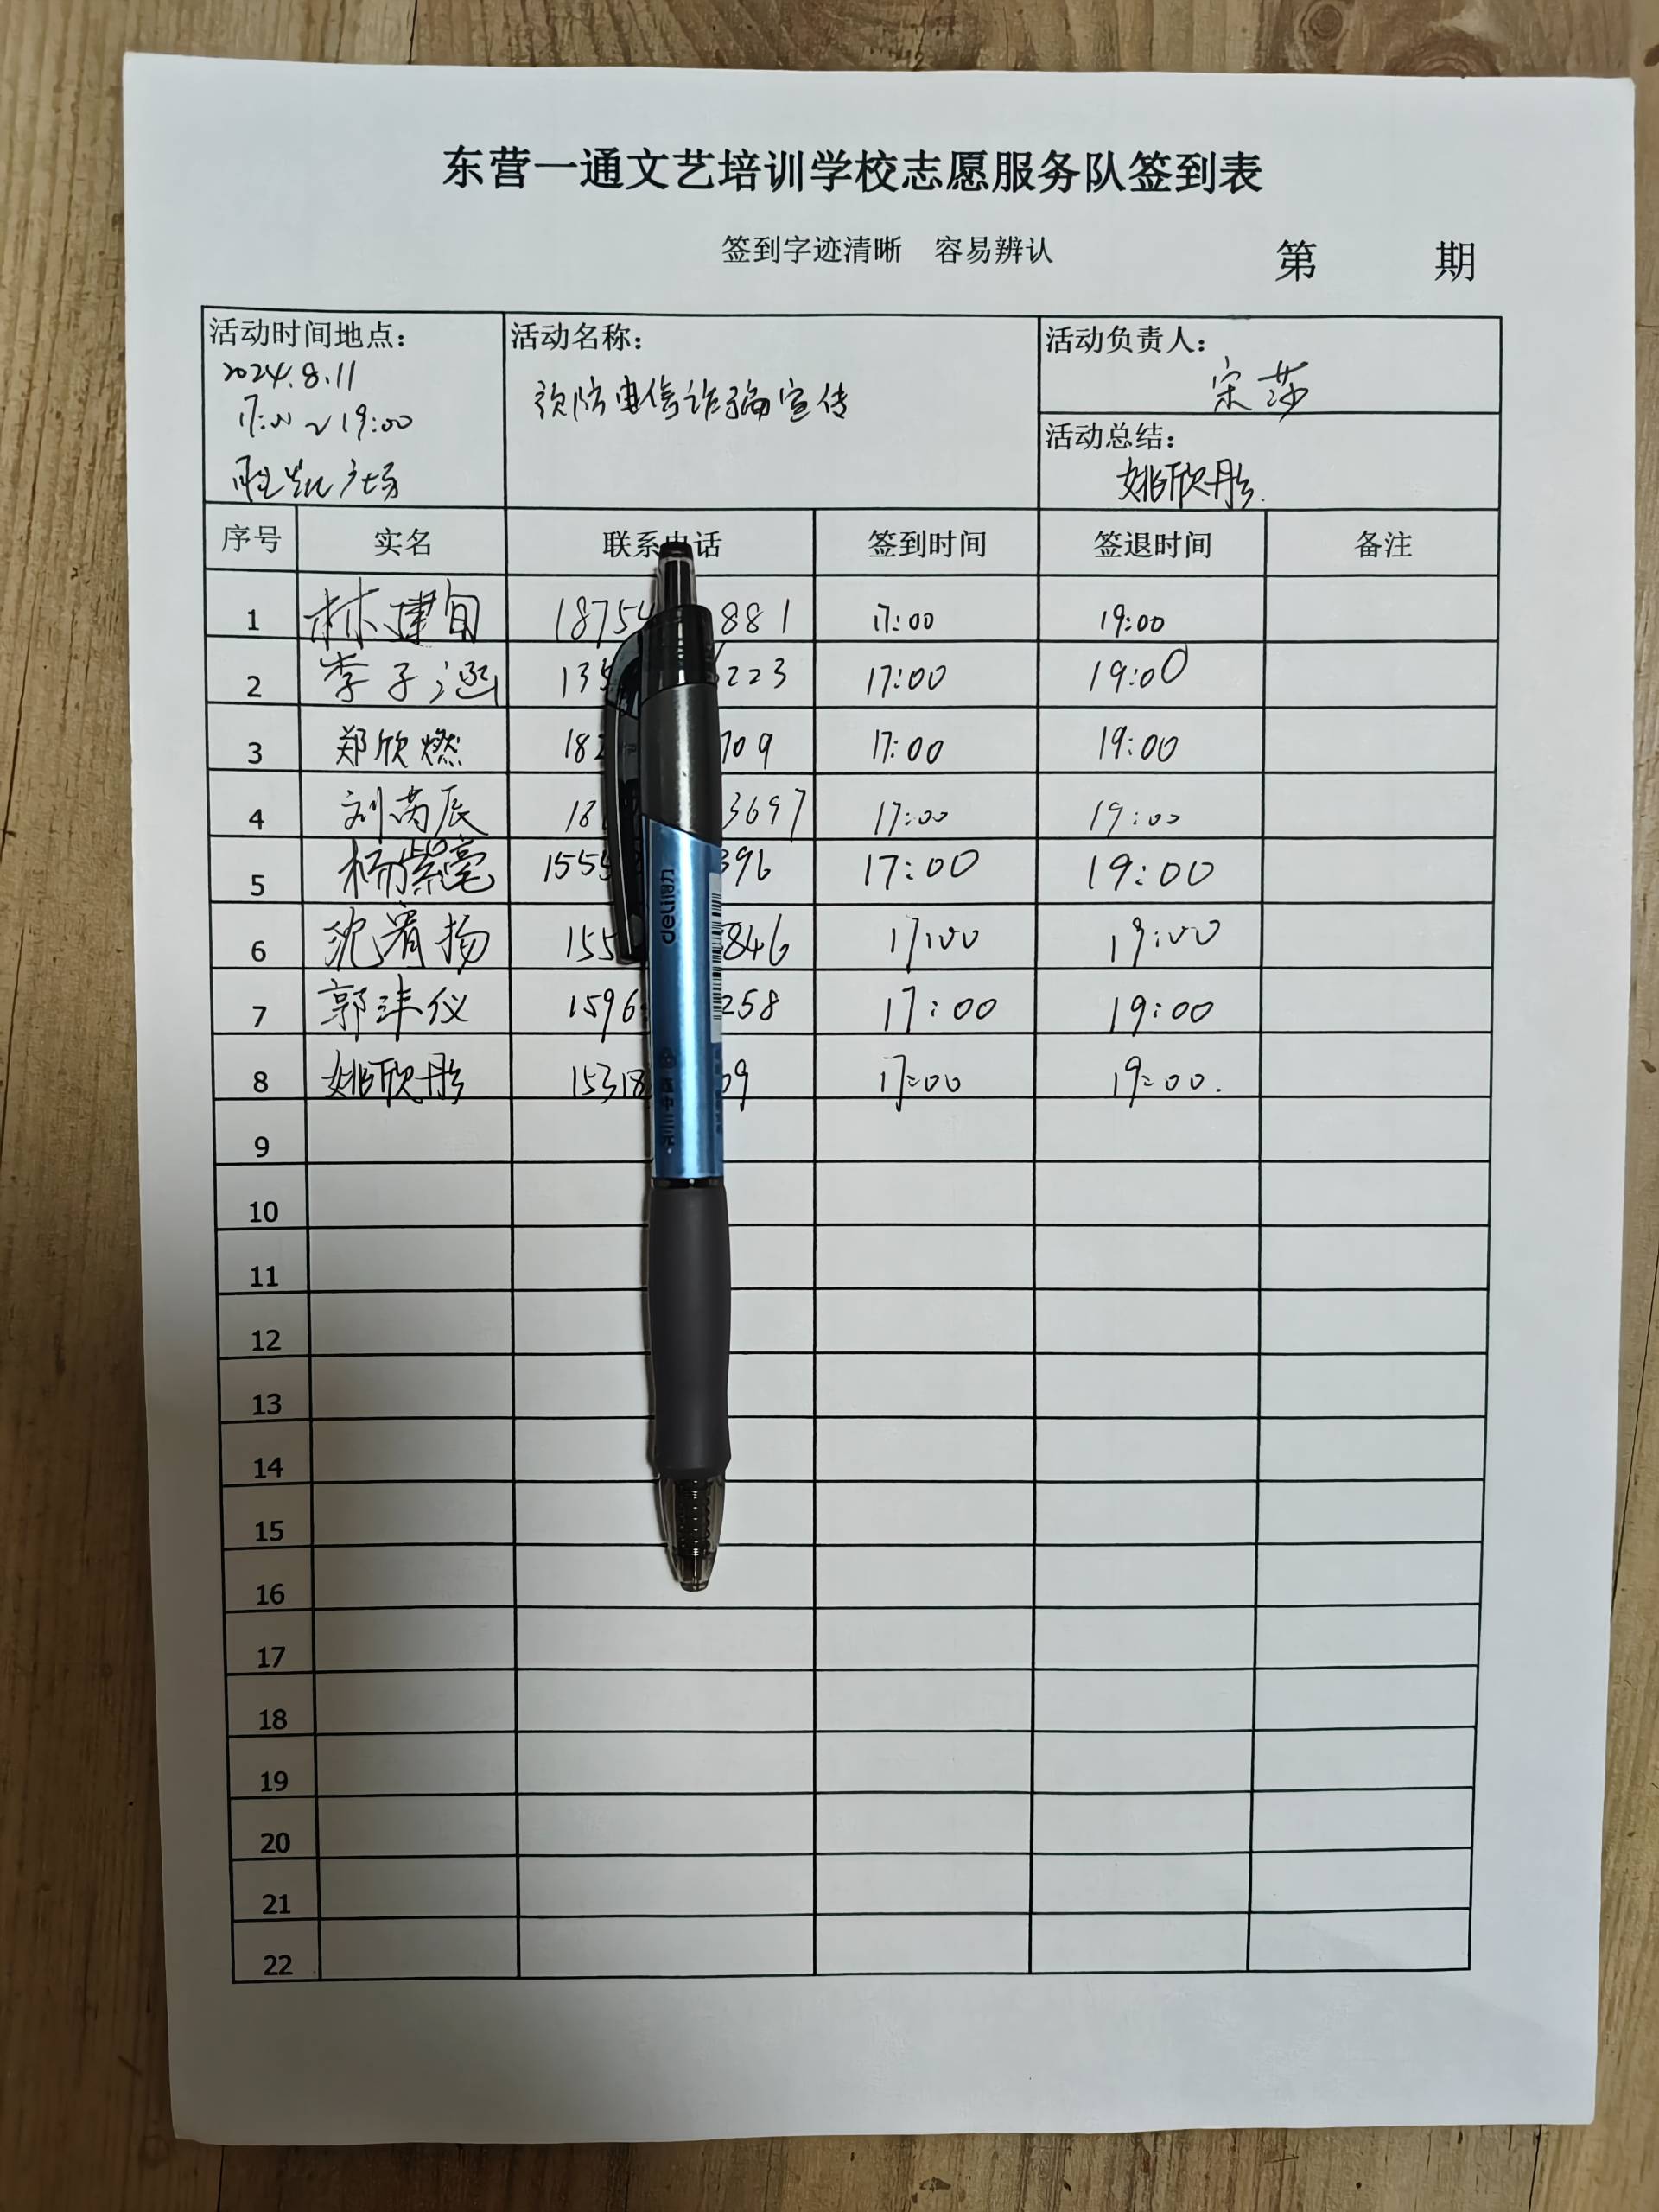 东营一通文艺培训学校志愿服务队签到表
签到字迹清晰 容易辨认
第 期
活动时间地点： 活动名称： 活动负责人：
2024.8.11
17:00~19:00
胜凯广场
预防电信诈骗宣传
宋莎
活动总结：
姚欣彤.
序号 实名 联系电话 签到时间 签退时间 备注
1 林建旬 18754 881 17:00 19:00
2 李子涵 135 223 17:00 19:00
3 郑欣燃 182 709 17:00 19:00
4 刘芮辰 18 3697 17:00 19:00
5 杨紫毫 1555 396 17:00 19:00
6 沈宥扬 155 846 17:00 19:00
7 郭沣仪 1596 258 17:00 19:00
8 姚欣彤 15318 09 17:00 19:00.
9
10
11
12
13
14
15
16
17
18
19
20
21
22
deli得力
连中三元